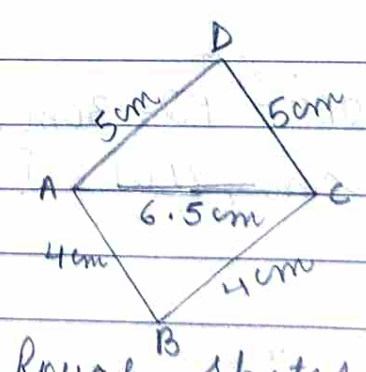 D
5cm
5cm
A
C
6.5cm
4cm
4cm
B
Rough sketch